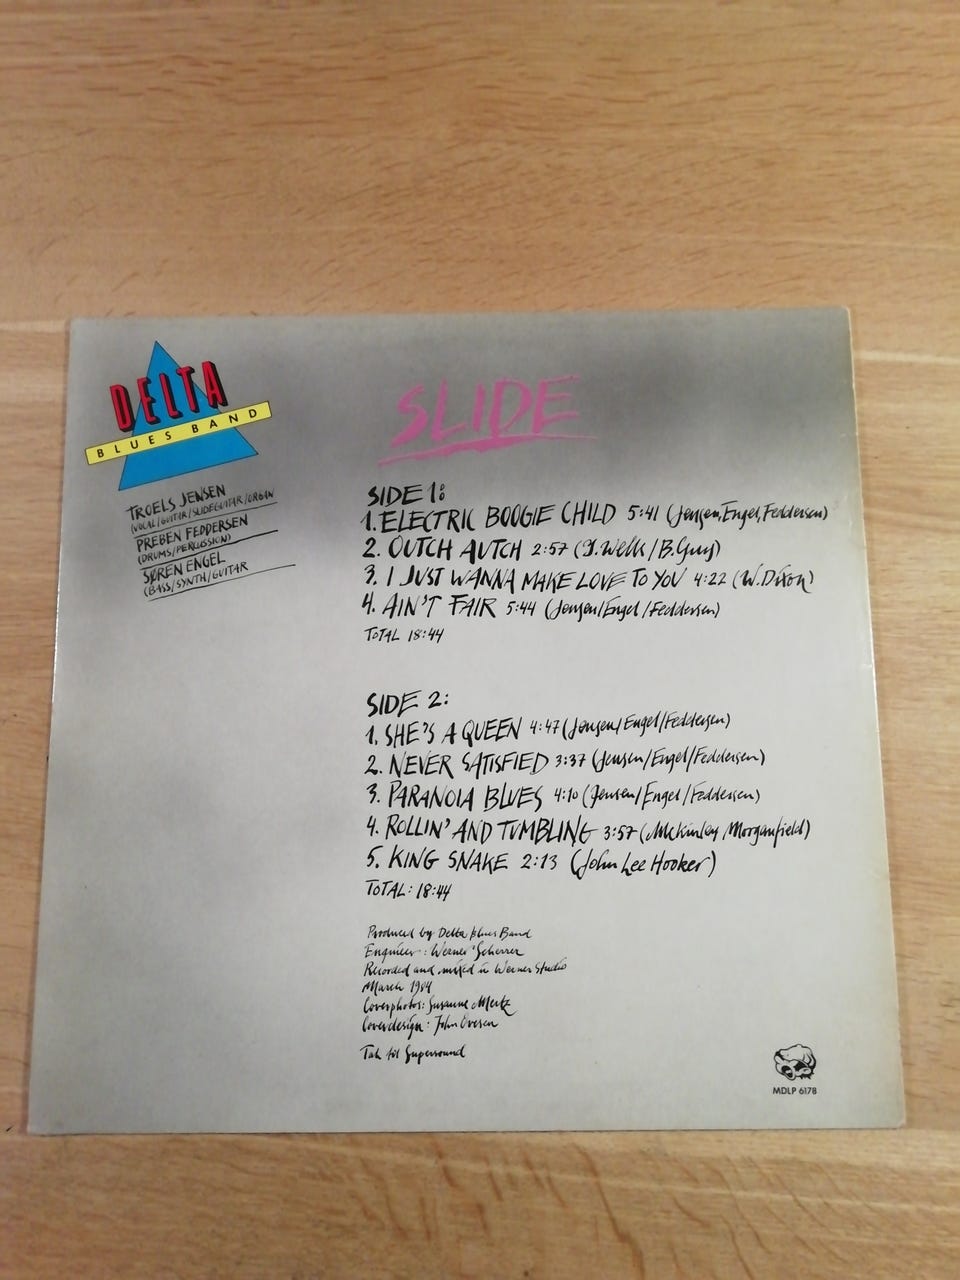 DELTA
BLUES BAND
TROELS JENSEN
(VOCAL/GUITAR/SLIDEGUITAR/ORGAN
PREBEN FEDDERSEN
(DRUMS/PERCUSSION)
SØREN ENGEL
(BASS/SYNTH/GUITAR
SLIDE
SIDE 1:
1. ELECTRIC BOOGIE CHILD 5:41 (Jensen, Engel, Feddersen)
2. OUTCH AUTCH 2:57 (J. Wells/B. Guy)
3. I JUST WANNA MAKE LOVE TO YOU 4:22 (W. Dixon)
4. AIN'T FAIR 5:44 (Jensen/Engel/Feddersen)
TOTAL 18:44
SIDE 2:
1. SHE'S A QUEEN 4:47 (Jensen/Engel/Feddersen)
2. NEVER SATISFIED 3:37 (Jensen/Engel/Feddersen)
3. PARANOIA BLUES 4:10 (Jensen/Engel/Feddersen)
4. ROLLIN' AND TUMBLING 3:57 (McKinley/Morganfield)
5. KING SNAKE 2:13 (John Lee Hooker)
TOTAL: 18:44
Produced by Delta Blues Band
Engineer: Werner Scherrer
Recorded and mixed in Werner Studio
March 1984
Coverphotos: Susanne Mertz
Coverdesign: John Ovesen
Tak til Supersound
MDLP 6178